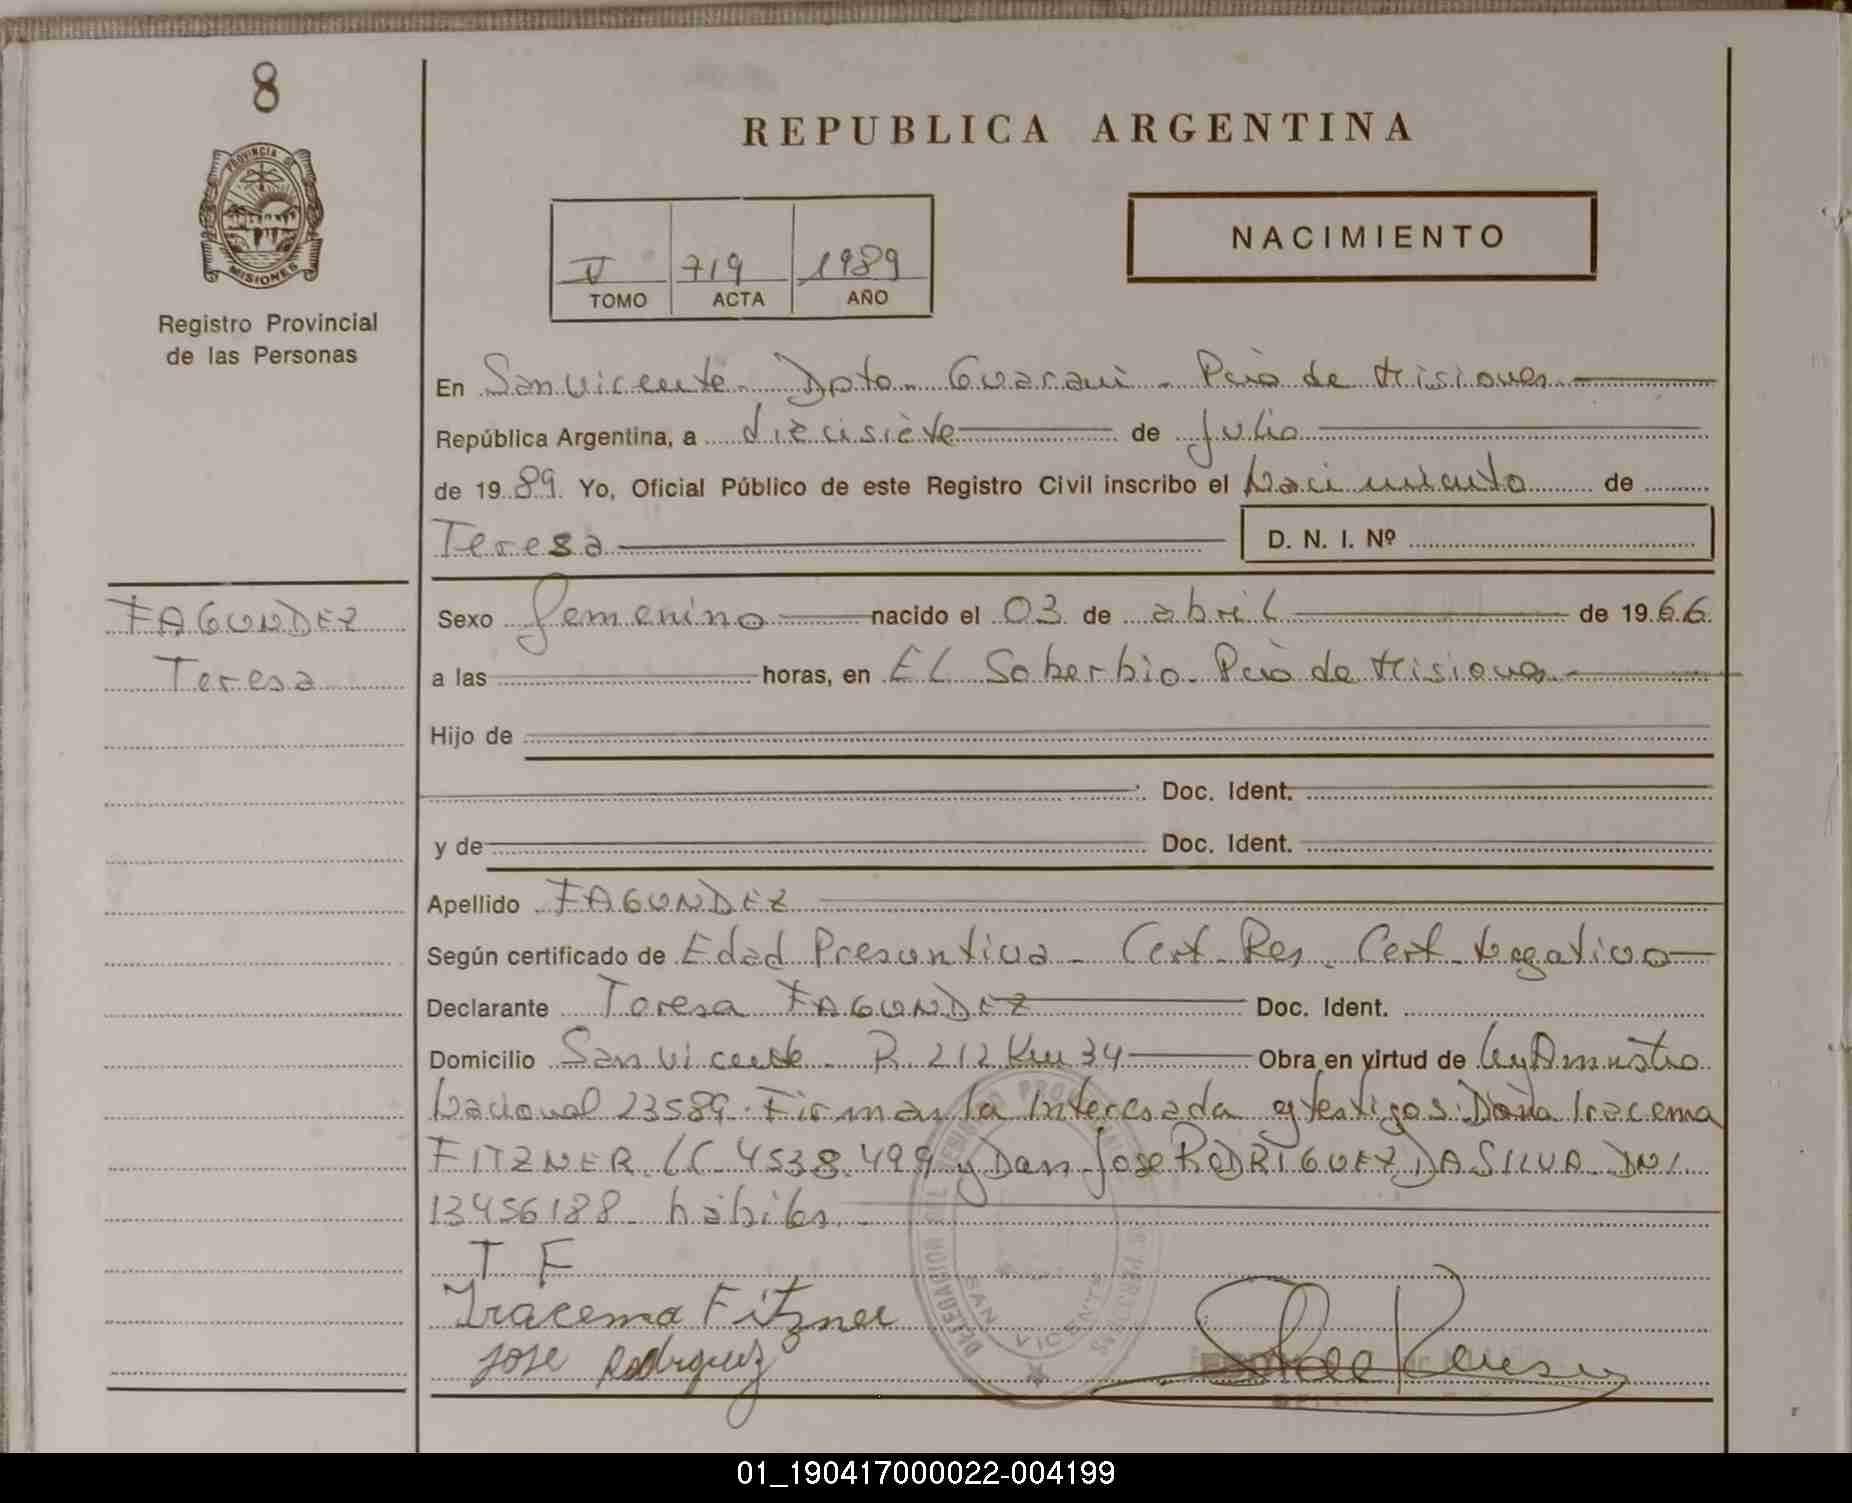 8
PROVINCIA DE
MISIONES
Registro Provincial
de las Personas
REPUBLICA ARGENTINA
V 719 1989
TOMO ACTA AÑO
NACIMIENTO
En San Vicente - Dpto - Guarani - Pcia de Misiones
República Argentina, a diecisiete de julio
de 1989. Yo, Oficial Público de este Registro Civil inscribo el Nacimiento de
Teresa D. N. I. Nº
FAGUNDEZ
Teresa
Sexo femenino nacido el 03 de abril de 1966.
a las horas, en EL Soberbio - Pcia de Misiones
Hijo de
Doc. Ident.
y de Doc. Ident.
Apellido FAGUNDEZ
Según certificado de Edad Presuntiva - Cert - Res - Cert - Negativo
Declarante Teresa FAGUNDEZ Doc. Ident.
Domicilio San Vicente - R. 212 Km 34 Obra en virtud de Ley
Nacional 23589. Firman la Interesada y testigos: Doña Iracema
FITZNER LC 4538.499 y Don Jose RODRIGUEZ DA SILVA DNI
13456188 habiles
T F
Iracema Fitzner
Jose Rodriguez
DELEGACION
SAN VICENTE
01_190417000022-004199